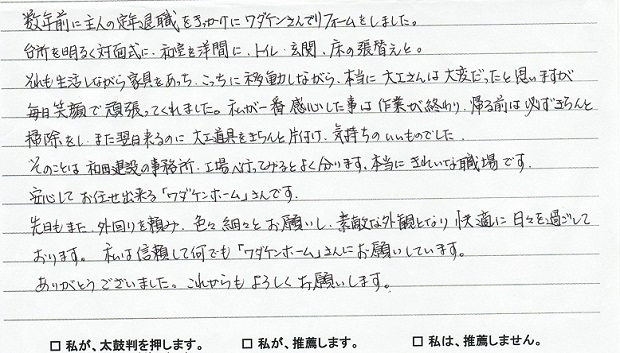 数年前に主人の定年退職をきっかけにワダケンさんでリフォームをしました。
台所を明るく対面式に、和室を洋間に、トイレ・玄関、床の張替えと。
それも生活しながら家具をあっち、こっちに移動しながら、本当に大工さんは大変だったと思いますが
毎日笑顔で頑張ってくれました。私が一番感心した事は作業が終わり、帰る前は必ずきちんと
掃除をし、また翌日来るのに大工道具をきちんと片付け、気持ちのいいものでした。
そのことは和田建設の事務所、工場へ行ってみるとよく分ります。本当にきれいな職場です。
安心してお任せ出来る「ワダケンホーム」さんです。
先日もまた、外回りを頼み、色々細々とお願いし、素敵な外観となり快適に日々を過ごして
おります。私は信頼して何でも「ワダケンホーム」さんにお願いしています。
ありがとうございました。これからもよろしくお願いします。
□ 私が、太鼓判を押します。 □ 私が、推薦します。 □ 私は、推薦しません。